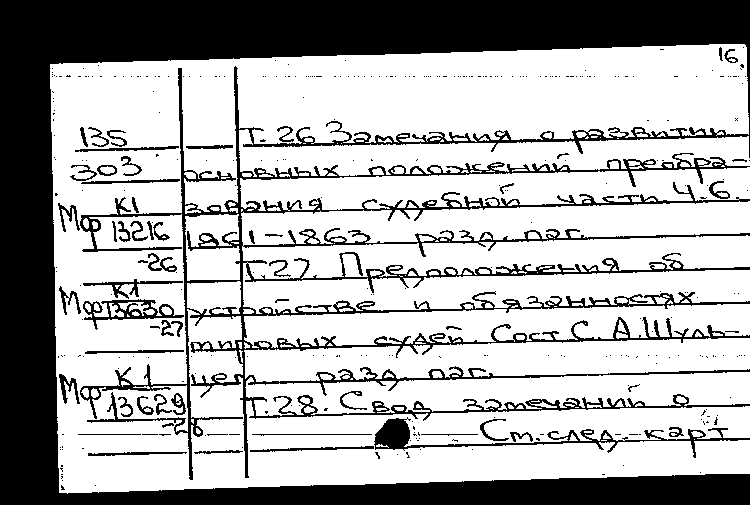 16.
135 Т. 26 Замечания о развитии
303 основных положений преобра-
Мф К1 зования судебной части. Ч. 6.
13216 1861-1863. разд. паг.
-26 Т.27. Предположения об
Мф К1 13630 устройстве и обязанностях
-27 мировых судей. Сост С. А. Шуль-
Мф К1 цем разд. паг.
13629 Т.28. Свод замечаний о
-28 См. след. карт